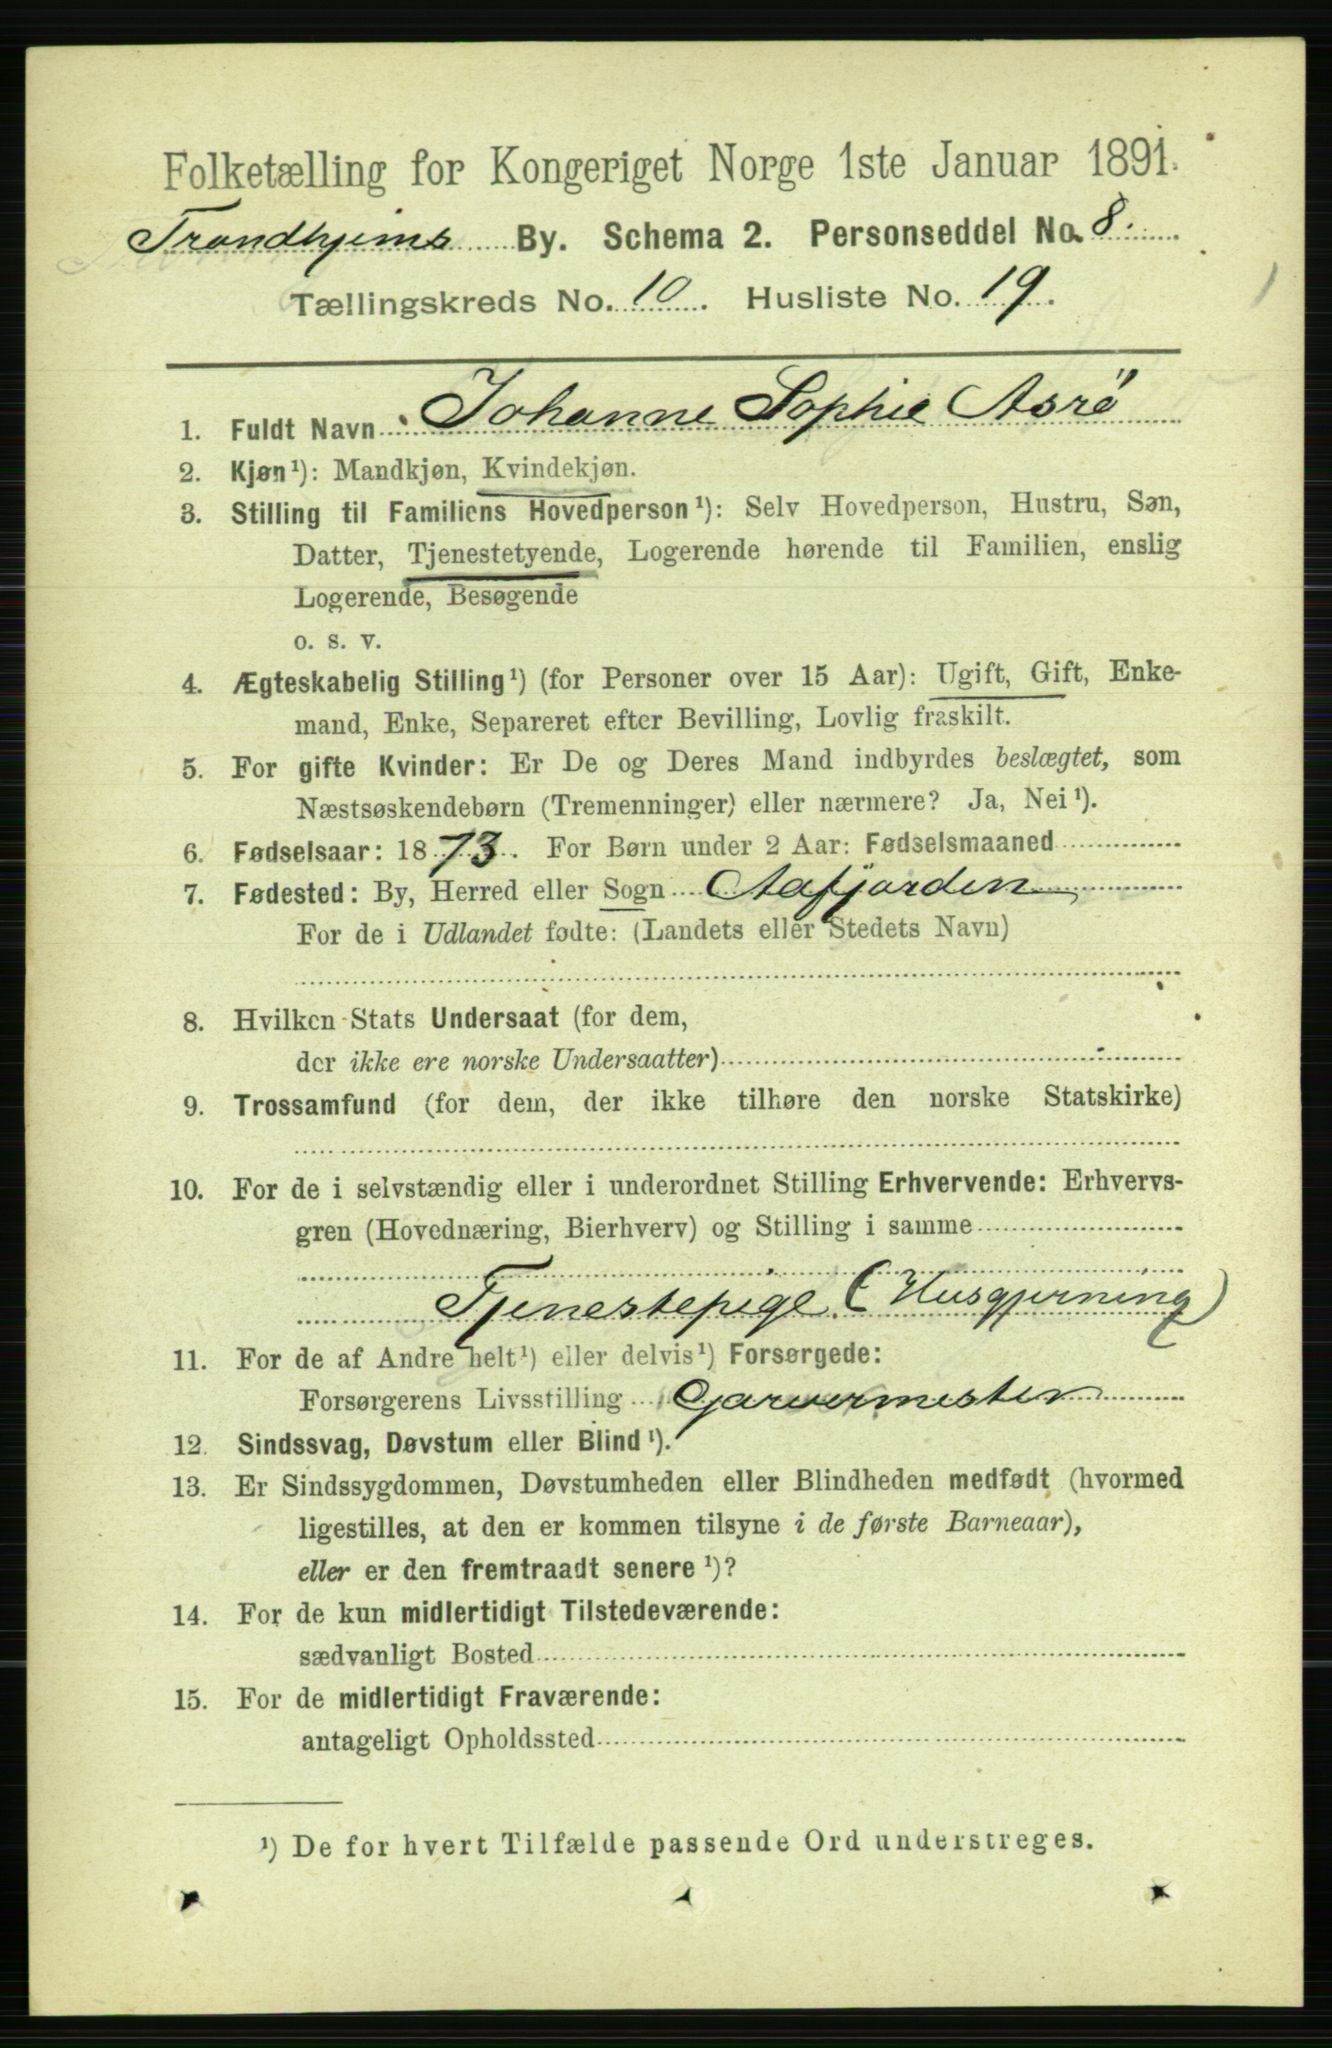 Folketælling for Kongeriget Norge 1ste Januar 1891.
Trondhjems By. Schema 2. Personseddel No. 8.
Tællingskreds No. 10. Husliste No. 19.
1. Fuldt Navn Johanne Sophie Asrö
2. Kjøn¹): Mandkjøn, Kvindekjøn.
3. Stilling til Familiens Hovedperson¹): Selv Hovedperson, Hustru, Søn,
Datter, Tjenestetyende, Logerende hørende til Familien, enslig
Logerende, Besøgende
o. s. v.
4. Ægteskabelig Stilling¹) (for Personer over 15 Aar): Ugift, Gift, Enke-
mand, Enke, Separeret efter Bevilling, Lovlig fraskilt.
5. For gifte Kvinder: Er De og Deres Mand indbyrdes beslægtet, som
Næstsøskendebørn (Tremenninger) eller nærmere? Ja, Nei¹).
6. Fødselsaar: 1873. For Børn under 2 Aar: Fødselsmaaned
7. Fødested: By, Herred eller Sogn Aafjorden
For de i Udlandet fødte: (Landets eller Stedets Navn)
8. Hvilken Stats Undersaat (for dem,
der ikke ere norske Undersaatter)
9. Trossamfund (for dem, der ikke tilhøre den norske Statskirke)
10. For de i selvstændig eller i underordnet Stilling Erhvervende: Erhvervs-
gren (Hovednæring, Bierhverv) og Stilling i samme
Tjenestepige. (Husgjerning)
11. For de af Andre helt¹) eller delvis¹) Forsørgede:
Forsørgerens Livsstilling Garvermester
12. Sindssvag, Døvstum eller Blind¹).
13. Er Sindssygdommen, Døvstumheden eller Blindheden medfødt (hvormed
ligestilles, at den er kommen tilsyne i de første Barneaar),
eller er den fremtraadt senere¹)?
14. For de kun midlertidigt Tilstedeværende:
sædvanligt Bosted
15. For de midlertidigt Fraværende:
antageligt Opholdssted
¹) De for hvert Tilfælde passende Ord understreges.